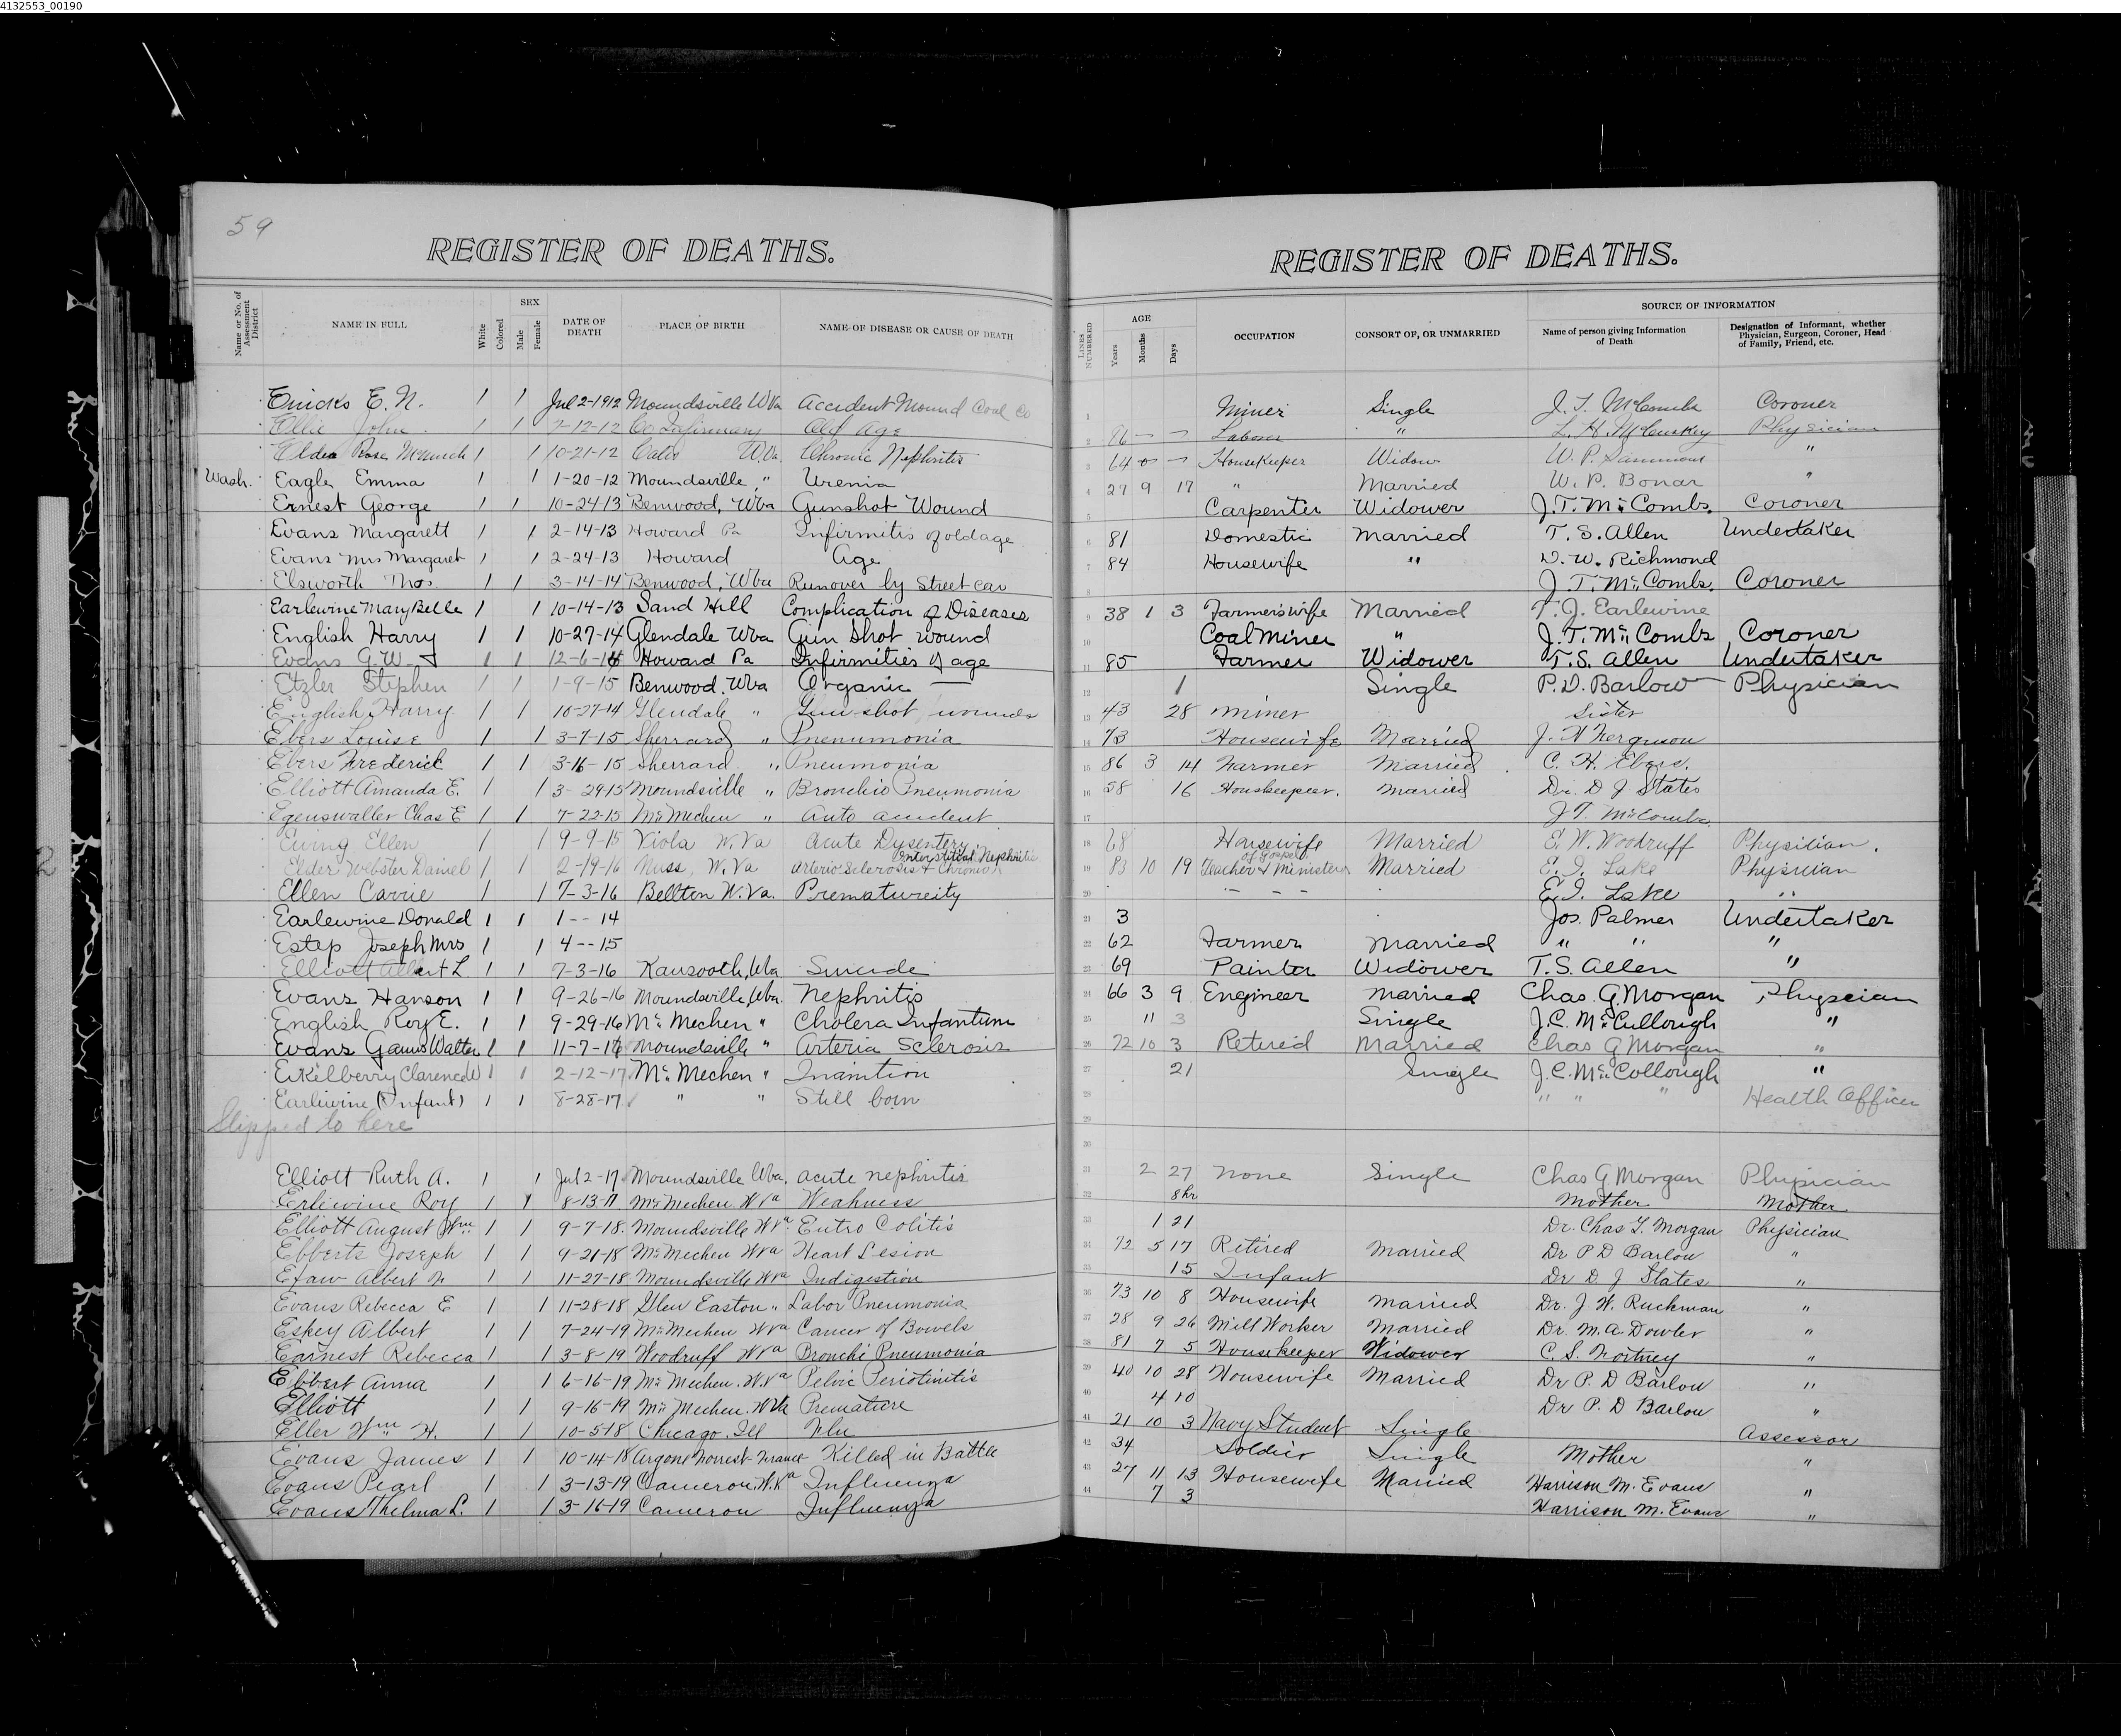 4132553_00190
59
REGISTER OF DEATHS.
Name or No. of Assessment District NAME IN FULL White Colored SEX Male Female DATE OF DEATH PLACE OF BIRTH NAME OF DISEASE OR CAUSE OF DEATH
E. N. 1 1 Jul 2-1912 Moundsville W Va Accident Mound Coal Co
Ellie John 1 1 7-12-12 Co Infirmary Old Age
Elder Rosa 1 1 10-21-12 W.Va. Chronic Nephritis
Wash. Eagle Emma 1 1 1-20-12 Moundsville, " Uremia
Ernest George 1 1 10-24 13 Benwood, Wva Gunshot Wound
Evans Margarett 1 1 2-14-13 Howard Pa Infirmitis of old age
Evans Mrs Margaret 1 1 2-24-13 Howard Age
Elsworth Thos. 1 1 3-14-14 Benwood, Wva Runover by Street car
Earlewine Mary Belle 1 1 10-14-13 Sand Hill Complication of Diseases
English Harry 1 1 10-27-14 Glendale Wva Gun Shot wound
Evans G.W. 1 1 12-6-14 Howard Pa Infirmities of age
Etzler Stephen 1 1 1-9-15 Benwood. Wva Organic —
English Harry 1 1 10-27-14 Glendale " Gun shot wounds
Ebers Louise 1 1 3-7-15 Sherrard " Pnenumonia
Ebers Frederick 1 1 3-16-15 Sherrard " Pneumonia
Elliott Amanda E. 1 1 3-29-15 Moundsville " Bronchio Pneumonia
Egenswaller Chas E 1 1 7-22-15 McMechen " Auto accident
Ewing Ellen 1 1 9-9-15 Viola W.Va Acute Dysentery
Elder Webster Daniel 1 1 2-19-16 W.Va Arterio Sclerosis & Chronic Interstitial Nephritis
Ellen Carrie 1 1 7-3-16 Bellton W.Va. Prematureity
Earlewine Donald 1 1 1--14
Estep Joseph Mrs 1 1 4--15
Elliott Albert L. 1 1 7-3-16 Kausooth, Wva Suicide
Evans Hanson 1 1 9-26-16 Moundsville, Wva. Nephritis
English Roy E. 1 1 9-29-16 Mc Mechen " Cholera Infantum
Evans Walter 1 1 11-7-16 Moundsville " Arteria Sclerosis
Eikilberry Clarence W 1 1 2-12-17 Mc Mechen " Inanition
Earliwine (Infant) 1 1 8-28-17 " " Still born
Slipped to here
Elliott Ruth A. 1 1 Jul 2-17 Moundsville Wva. Acute nephritis
Erliwine Roy 1 1 8-13-17 McMechen W Va Weakness
Elliott August Wm 1 1 9-7-18. Moundsville W Va Entro Colitis
Ebberts Joseph 1 1 9-21-18 McMechen W Va Heart Lesion
Efaw Albert 1 1 11-27-18 Moundsville W Va Indigestion
Evans Rebecca E 1 1 11-28-18 Glen Easton " Labor Pneumonia
Eskey Albert 1 1 7-24-19 McMechen W Va Cancer of Bowels
Earnest Rebecca 1 1 3-8-19 Woodruff W Va Bronchi Pneumonia
Ebbert Anna 1 1 6-16-19 Mc Mechen. W.Va Pelvic Periotinitis
Elliott 1 1 9-16-19 Mc Mechen. W Va Premature
Eller Wm H. 1 1 10-5-18 Chicago, Ill Flu
Evans James 1 1 10-14-18 Argone Forrest France Killed in Battle
Evans Pearl 1 1 3-13-19 Cameron, W.Va Influenza
Evans Thelma L. 1 1 3-16-19 Cameron Influenza
REGISTER OF DEATHS.
LINES NUMBERED AGE Years Months Days OCCUPATION CONSORT OF, OR UNMARRIED SOURCE OF INFORMATION Name of person giving Information of Death Designation of Informant, whether Physician, Surgeon, Coroner, Head of Family, Friend, etc.
1 Miner Single J. T. McCombs Coroner
2 — — Laborer " Physician
3 64 0 — Housekeeper Widow W. P. Sammons "
4 27 9 17 " Married W. P. Bonar "
5 Carpenter Widower J. T. McCombs. Coroner
6 81 Domestic Married T. S. Allen Undertaker
7 84 Housewife " D. W. Richmond
8 J. T. McCombs. Coroner
9 38 1 3 Farmer's wife Married T. J. Earlewine
10 Coal Miner " J. T. McCombs Coroner
11 85 Farmer Widower T. S. Allen Undertaker
12 1 Single P. D. Barlow Physician
13 43 28 Miner Sister
14 73 Housewife Married J. W Ferguson
15 86 3 14 Farmer Married C. H. Ebers.
16 58 16 Houskeeper. Married Dr. D J States
17 J T. McCombs.
18 68 Housewife Married E. W. Woodruff Physitian.
19 83 10 19 Teacher & Minister of Gospel Married E. I. Lake Physician
20 - - - E. I. Lake "
21 3 Jos. Palmer Undertaker
22 62 Farmer Married " " "
23 69 Painter Widower T. S. Allen "
24 66 3 9 Engineer Married Chas. G. Morgan Physcian
25 11 3 Single J. C. McCullough "
26 72 10 3 Retired Married Chas G Morgan "
27 21 Single J. C. McCollough "
28 " " " Health Officer
29
30
31 2 27 None Single Chas G Morgan Physician
32 8hr Mother Mother
33 1 21 Dr. Chas G. Morgan Physician
34 72 5 17 Retired Married Dr P D Barlow "
35 15 Infant Dr D. J States "
36 73 10 8 Housewife Married Dr. J. W. Ruckman "
37 28 9 26 Mill Worker Married Dr. M. A. Dowler "
38 81 7 5 Housekeeper Widower C. S. Fortney "
39 40 10 28 Housewife Married Dr P. D Barlow "
40 4 10 Dr P. D Barlow "
41 21 10 3 Navy Student Single Assessor
42 34 Soldier Single Mother "
43 27 11 13 Housewife Married Harrison M. Evans "
44 7 3 Harrison M. Evans "